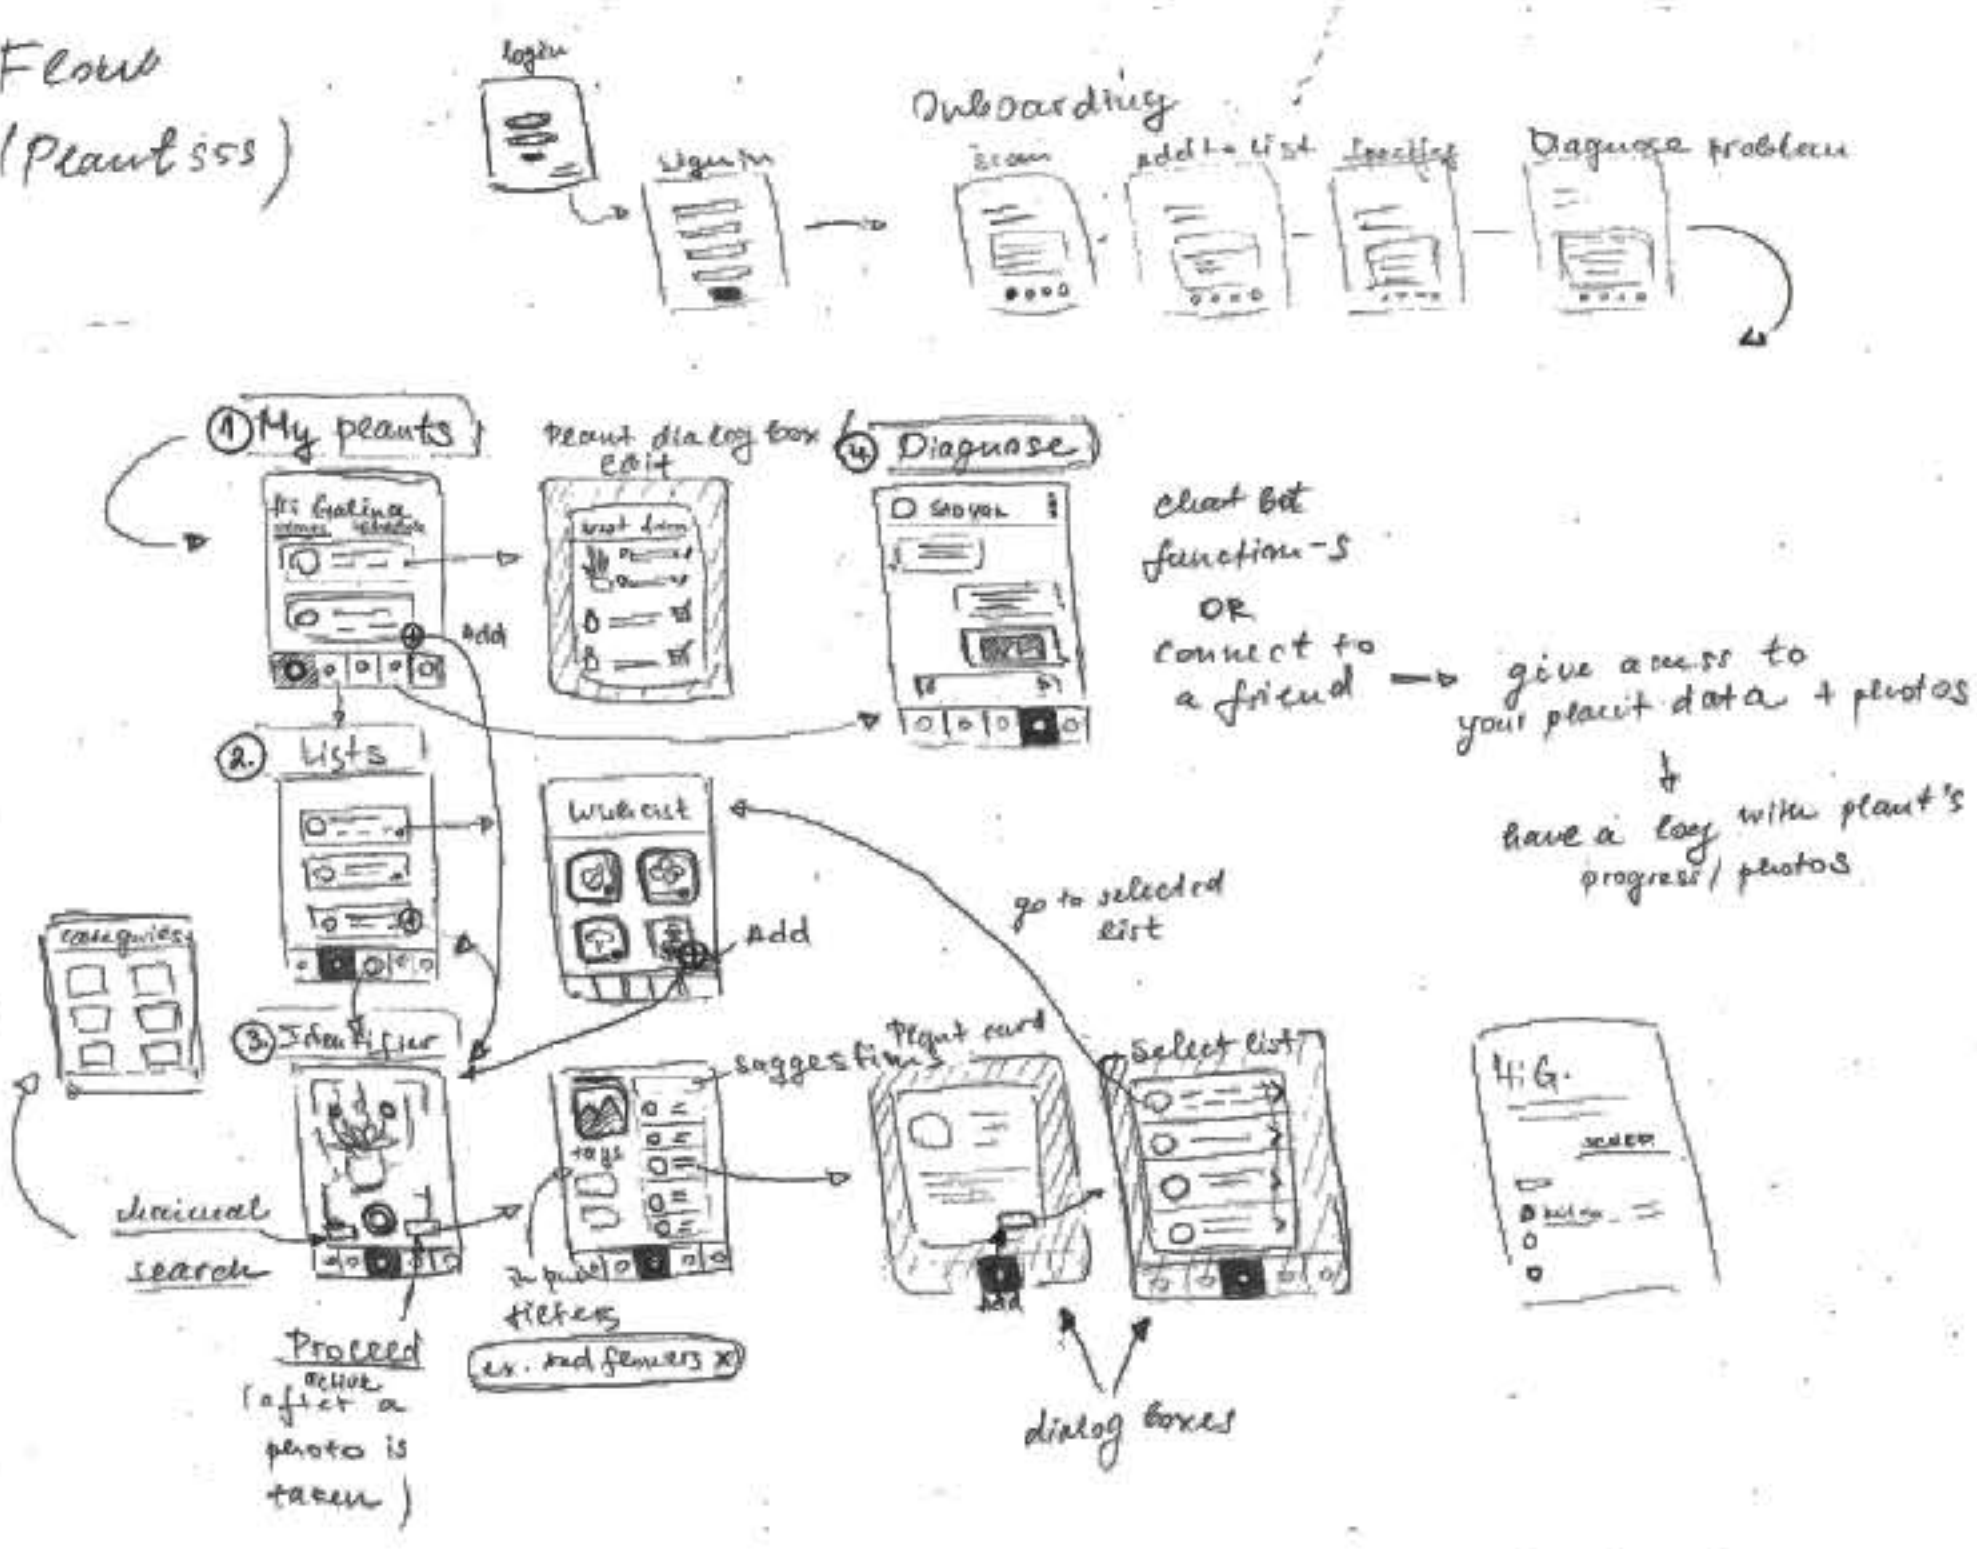 Flow
(Plantsss)
login
sign in
Onboarding
scan
add to list
Diagnose problem
1 My plants
Hi Galina
Add
Plant dialog box
edit
4. Diagnose
chat bot
function-s
OR
connect to
a friend
give acess to
your plant data + photos
have a log with plant's
progress/ photos
2. Lists
Wishlist
Add
go to selected
list
categories
3. Identifier
suggestions
tags
Plant card
Select list
Hi G.
manual
search
input
filters
ex. red flowers x
Add
Proceed
active
(after a
photo is
taken)
dialog boxes